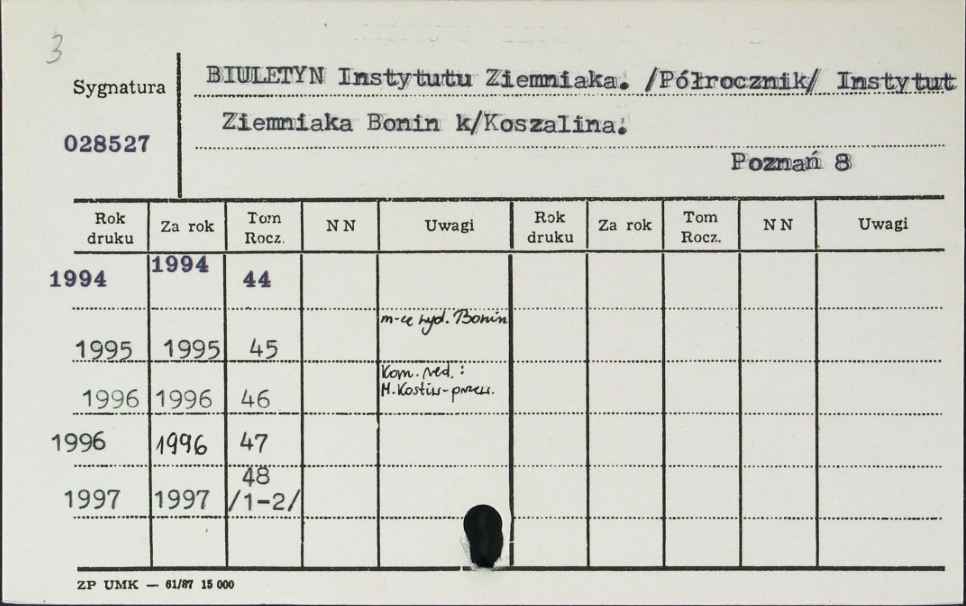 3
Sygnatura
028527
BIULETYN Instytutu Ziemniaka. /Półrocznik/ Instytut
Ziemniaka Bonin k/Koszalina.
Poznań 8
Rok druku Za rok Tom Rocz. NN Uwagi Rok druku Za rok Tom Rocz. NN Uwagi
1994 1994 44
m-ce wyd. Bonin
1995 1995 45
Kom. red.:
1996 1996 46 M. Kostiw-przew.
1996 1996 47
48
1997 1997 /1-2/
ZP UMK — 61/87 15 000